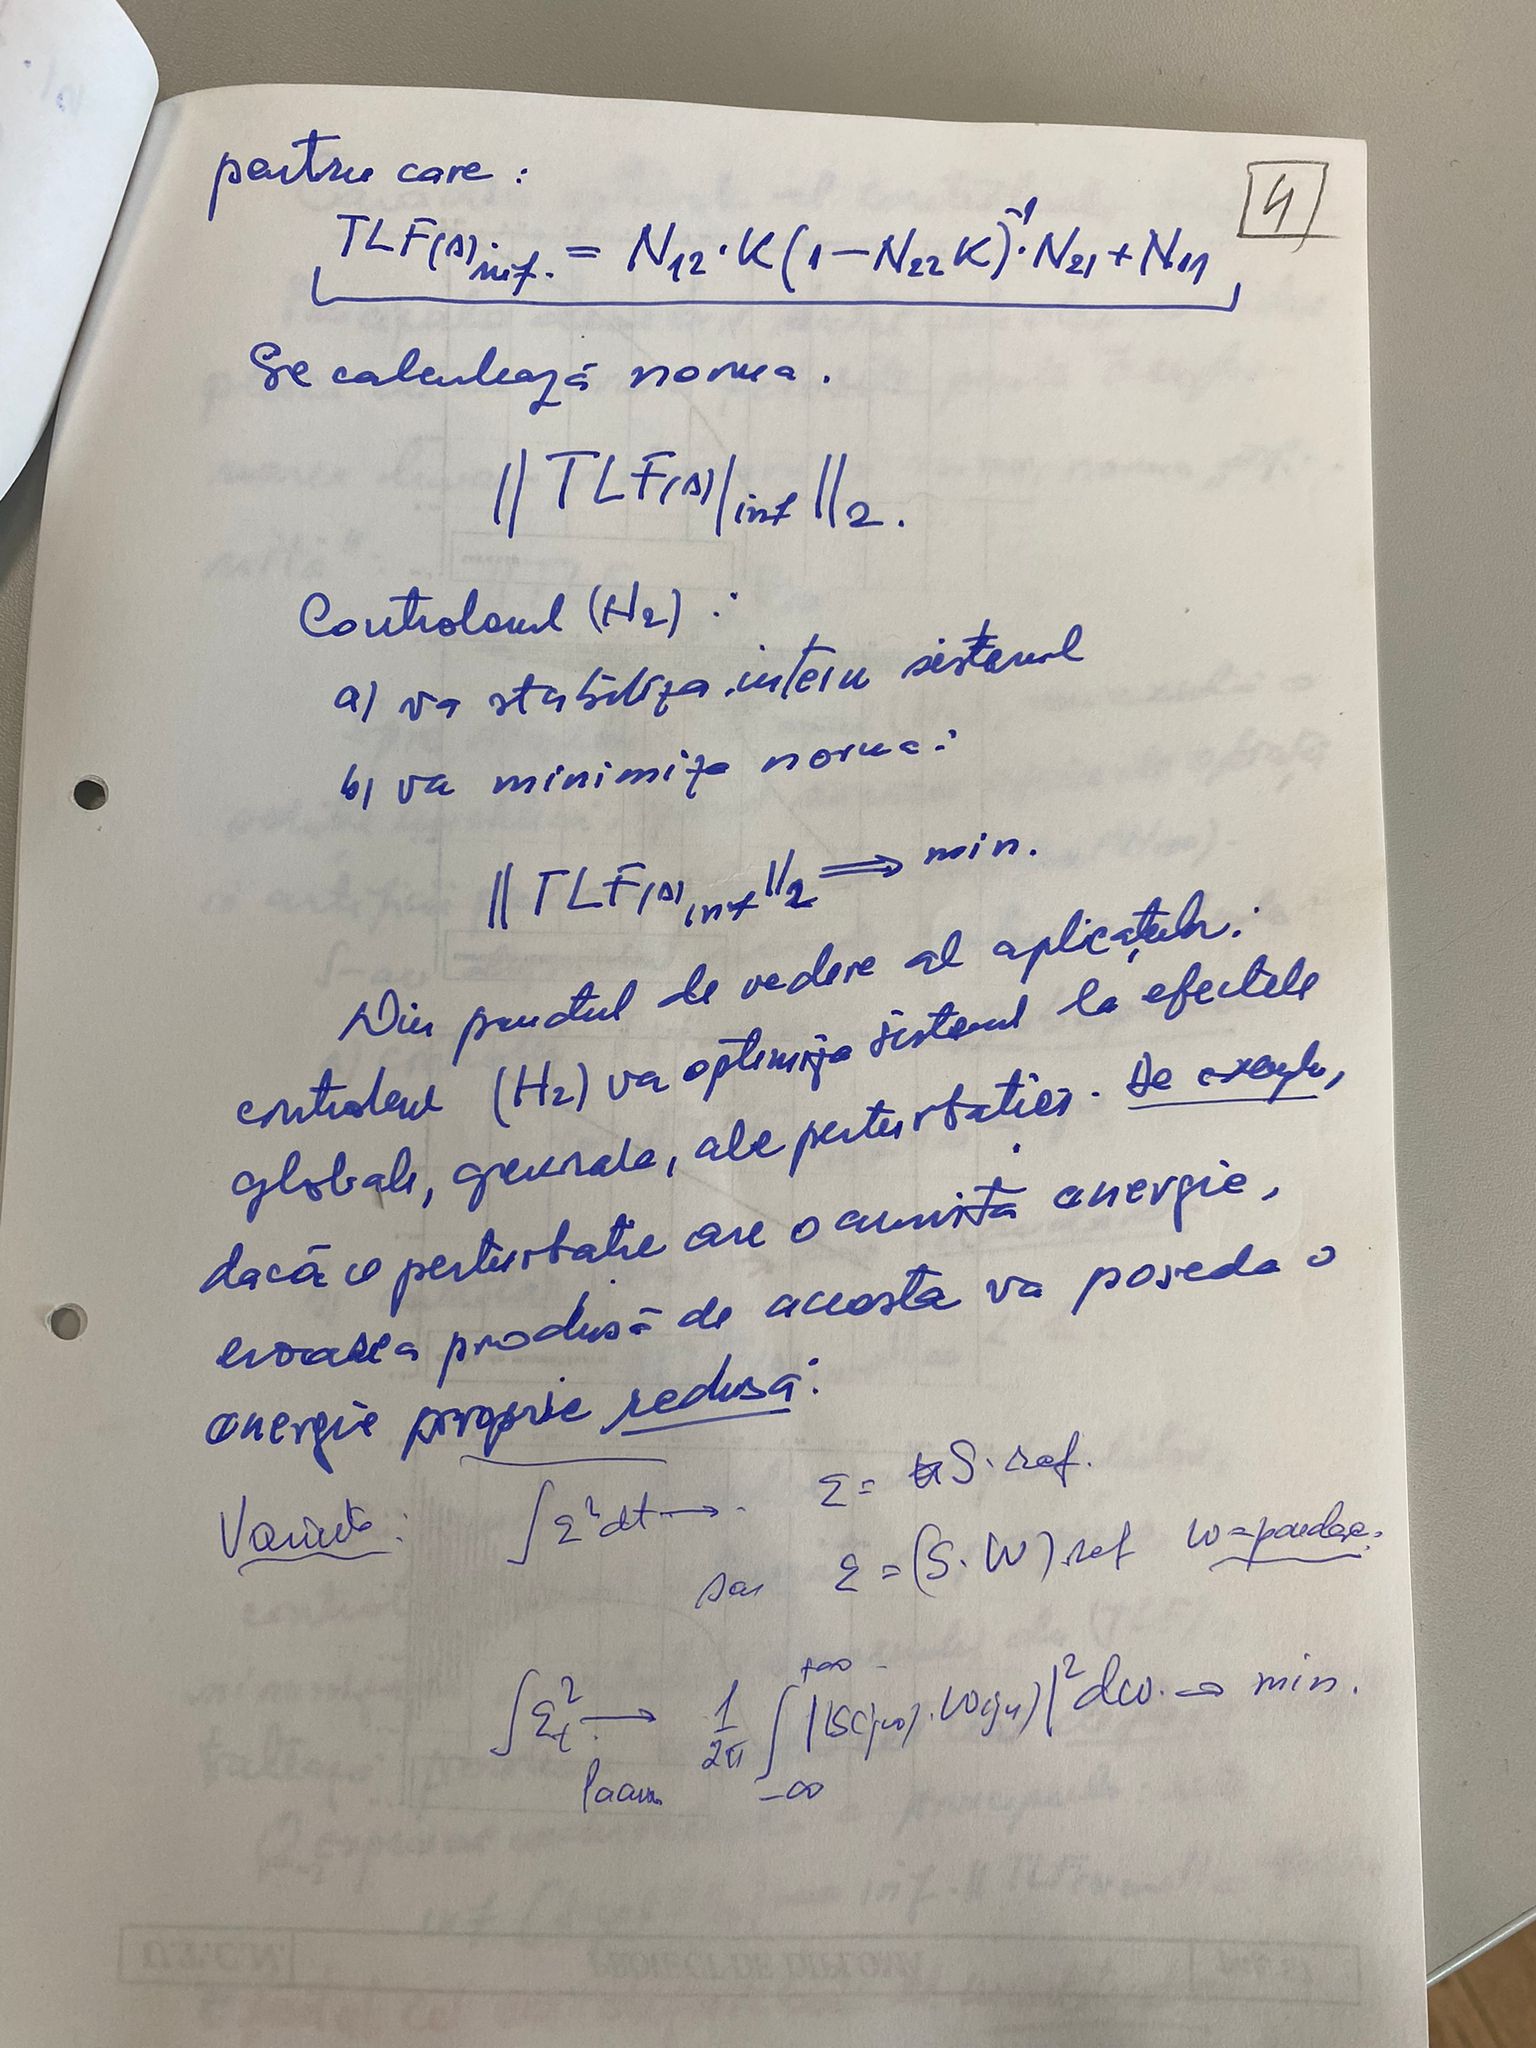 4
pentru care :
TLF(s)inf. = N12 · K (1 – N22 K)^-1 · N21 + N11
Se calculează norma .
|| TLF(s)|inf ||2 .
Controlerul (H2) :
a) va stabiliza intern sistemul
b) va minimiza norma :
|| TLF(s)inf ||2 ⟹ min.
Din punctul de vedere al aplicațiilor :
controlerul (H2) va optimiza sistemul la efectele
globale, generale, ale perturbației. De exemplu,
dacă o perturbație are o anumită energie,
eroarea produsă de aceasta va poseda o
energie proprie redusă :
Varianta : ∫ε²dt → ε = S · ref.
sau ε = (S · W) ref W = pondere.
∫ε²t → 1/2π ∫ -∞ +∞ |(S(jω) · W(jω)|² dω → min.